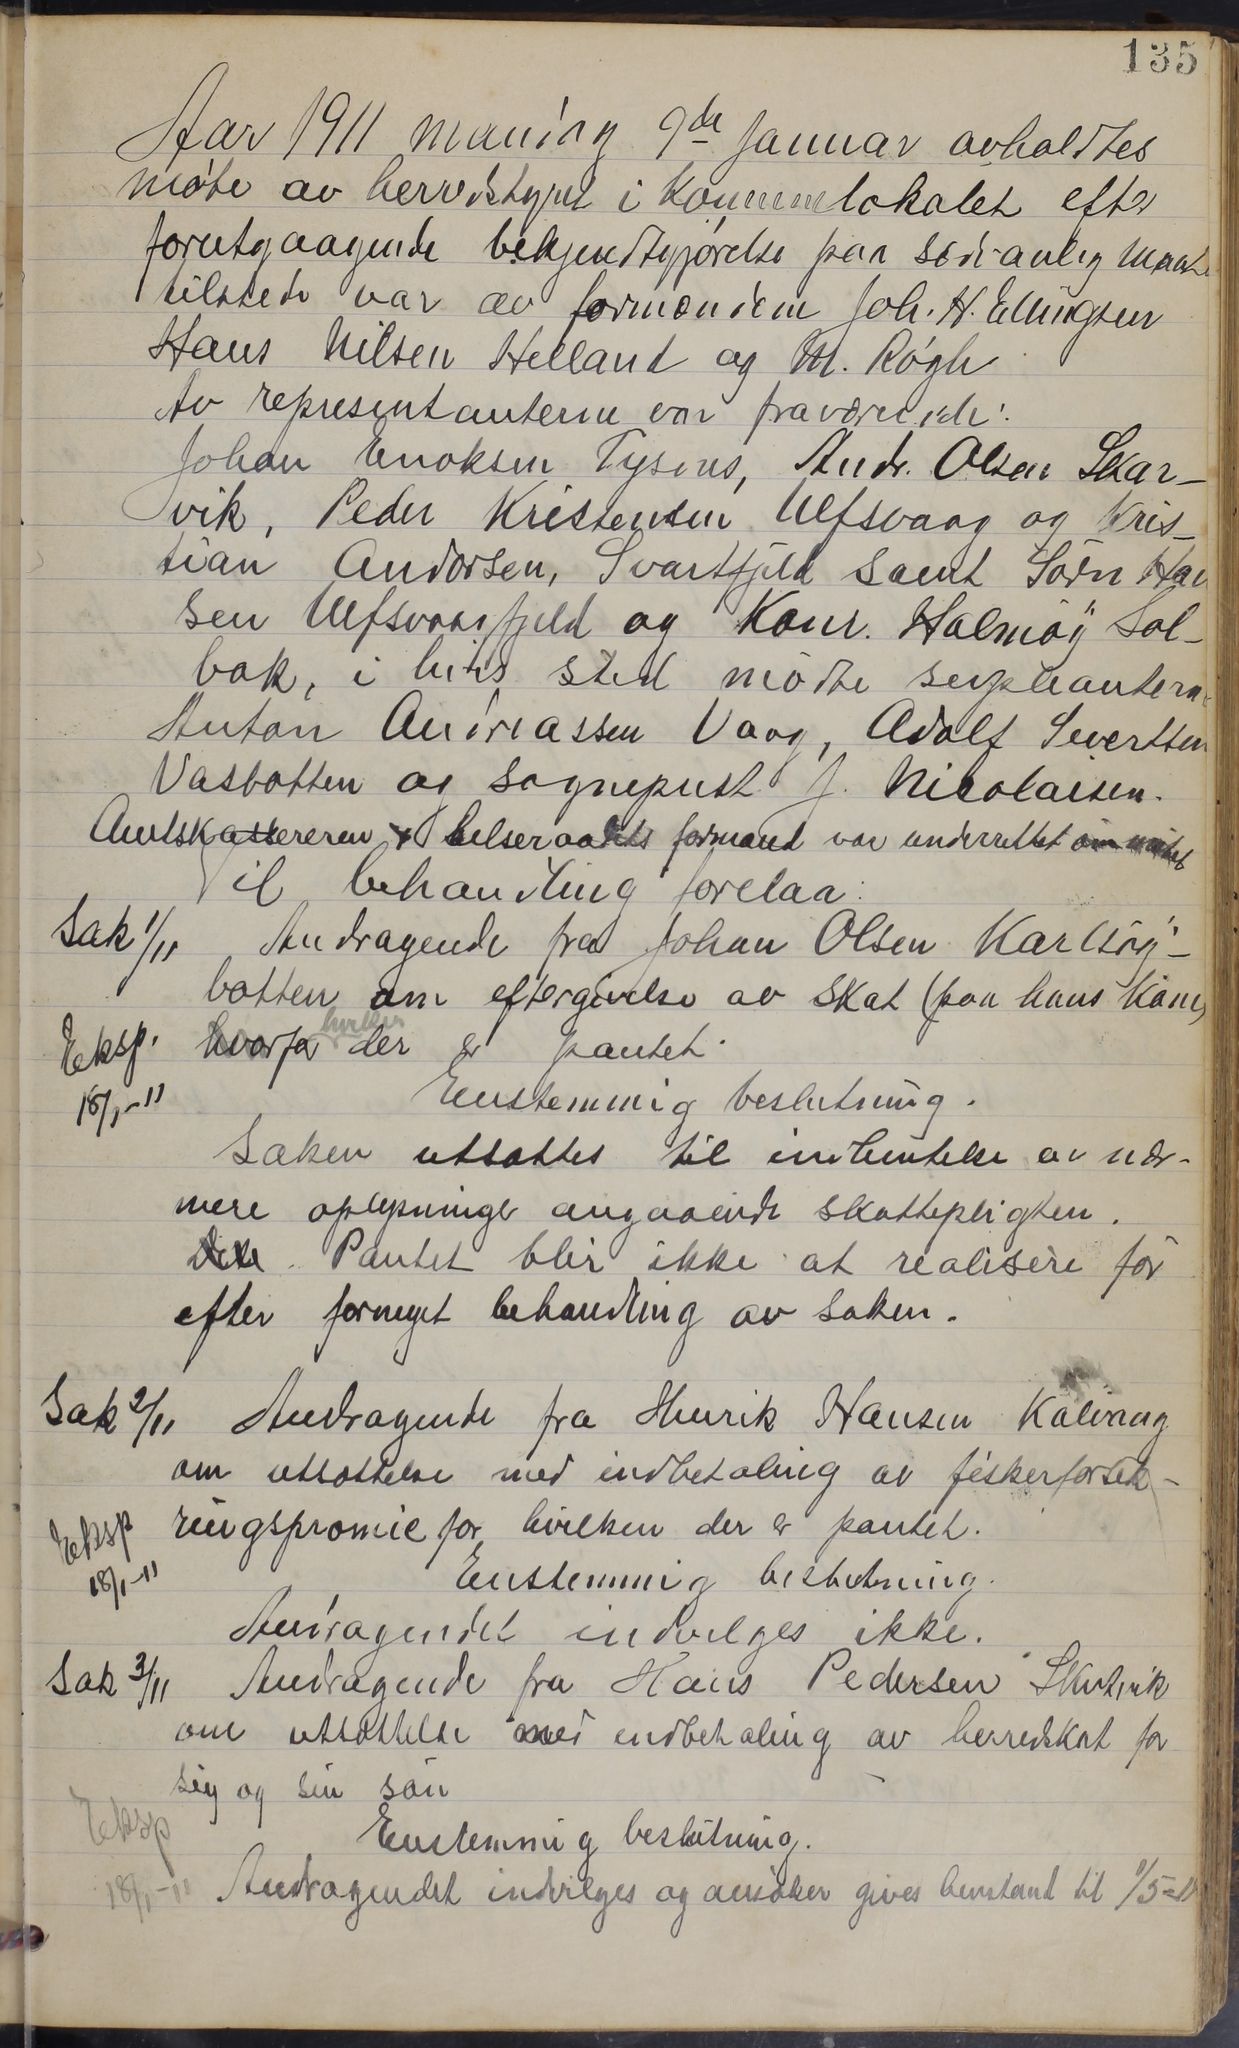 135
Aar 1911 mandag 9de Januar avholdtes
møte av herredstyret i Kommunelokalet efter
forutgaaende bekjendtgjørelse paa sedvanlig maate
tilstede var av formændene Joh. H. Ellingsen
Hans Nilsen Helland og M. Røgh
Av representanterne var fraværende:
Johan Enoksen Tysnes, Andr. Olsen Skar-
vik, Peder Kristensen Ulfsvaag og Kris-
tian Andorsen, Svartfjeld samt Sørn Han
sen Ulfsvaagfjeld og Konr. Halmøy Sol-
bak, i hvis sted mødte suppleanterne
Anton Andreassen Vaag, Adolf Sivertsen
Vasbotten og sogneprest J. Nicolaisen.
Amtskassereren & helseraadets formand var underrettet om møtet
Til behandling forelaa:
Sak 1/11 Andragende fra Johan Olsen Karlsøy-
botten om eftergivelse av skat (paa hans Kone)
Eksp. hvorfor hvilken der er pantet.
18/1-11 Enstemmig beslutning.
Saken utsattes til indhentelse av nær-
mere oplysninger angaaende skattepligten.
Pantet blir ikke at realisere før
efter fornyet behandling av saken.
Sak 2/11 Andragende fra Henrik Hansen Kalvaag
om utsættelse med indbetaling av fiskerforsik-
Eksp ringspræmie for hvilken der er pantet.
18/1-11 Enstemmig beslutning.
Andragendet indvilges ikke.
Sak 3/11 Andragende fra Hans Pedersen Skutvik
om utsættelse med indbetaling av herredskat for
sig og sin søn
Eksp Enstemmig beslutning.
18/1-11 Andragendet indvilges og ansøker gives henstand til 1/5-11